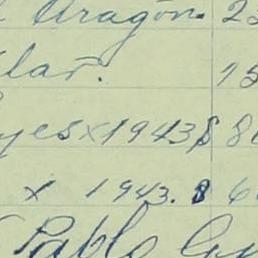 Aragón. 2
lar. 15
yes x 1943 $ 8
x 1943. $ 6
Pablo Gu